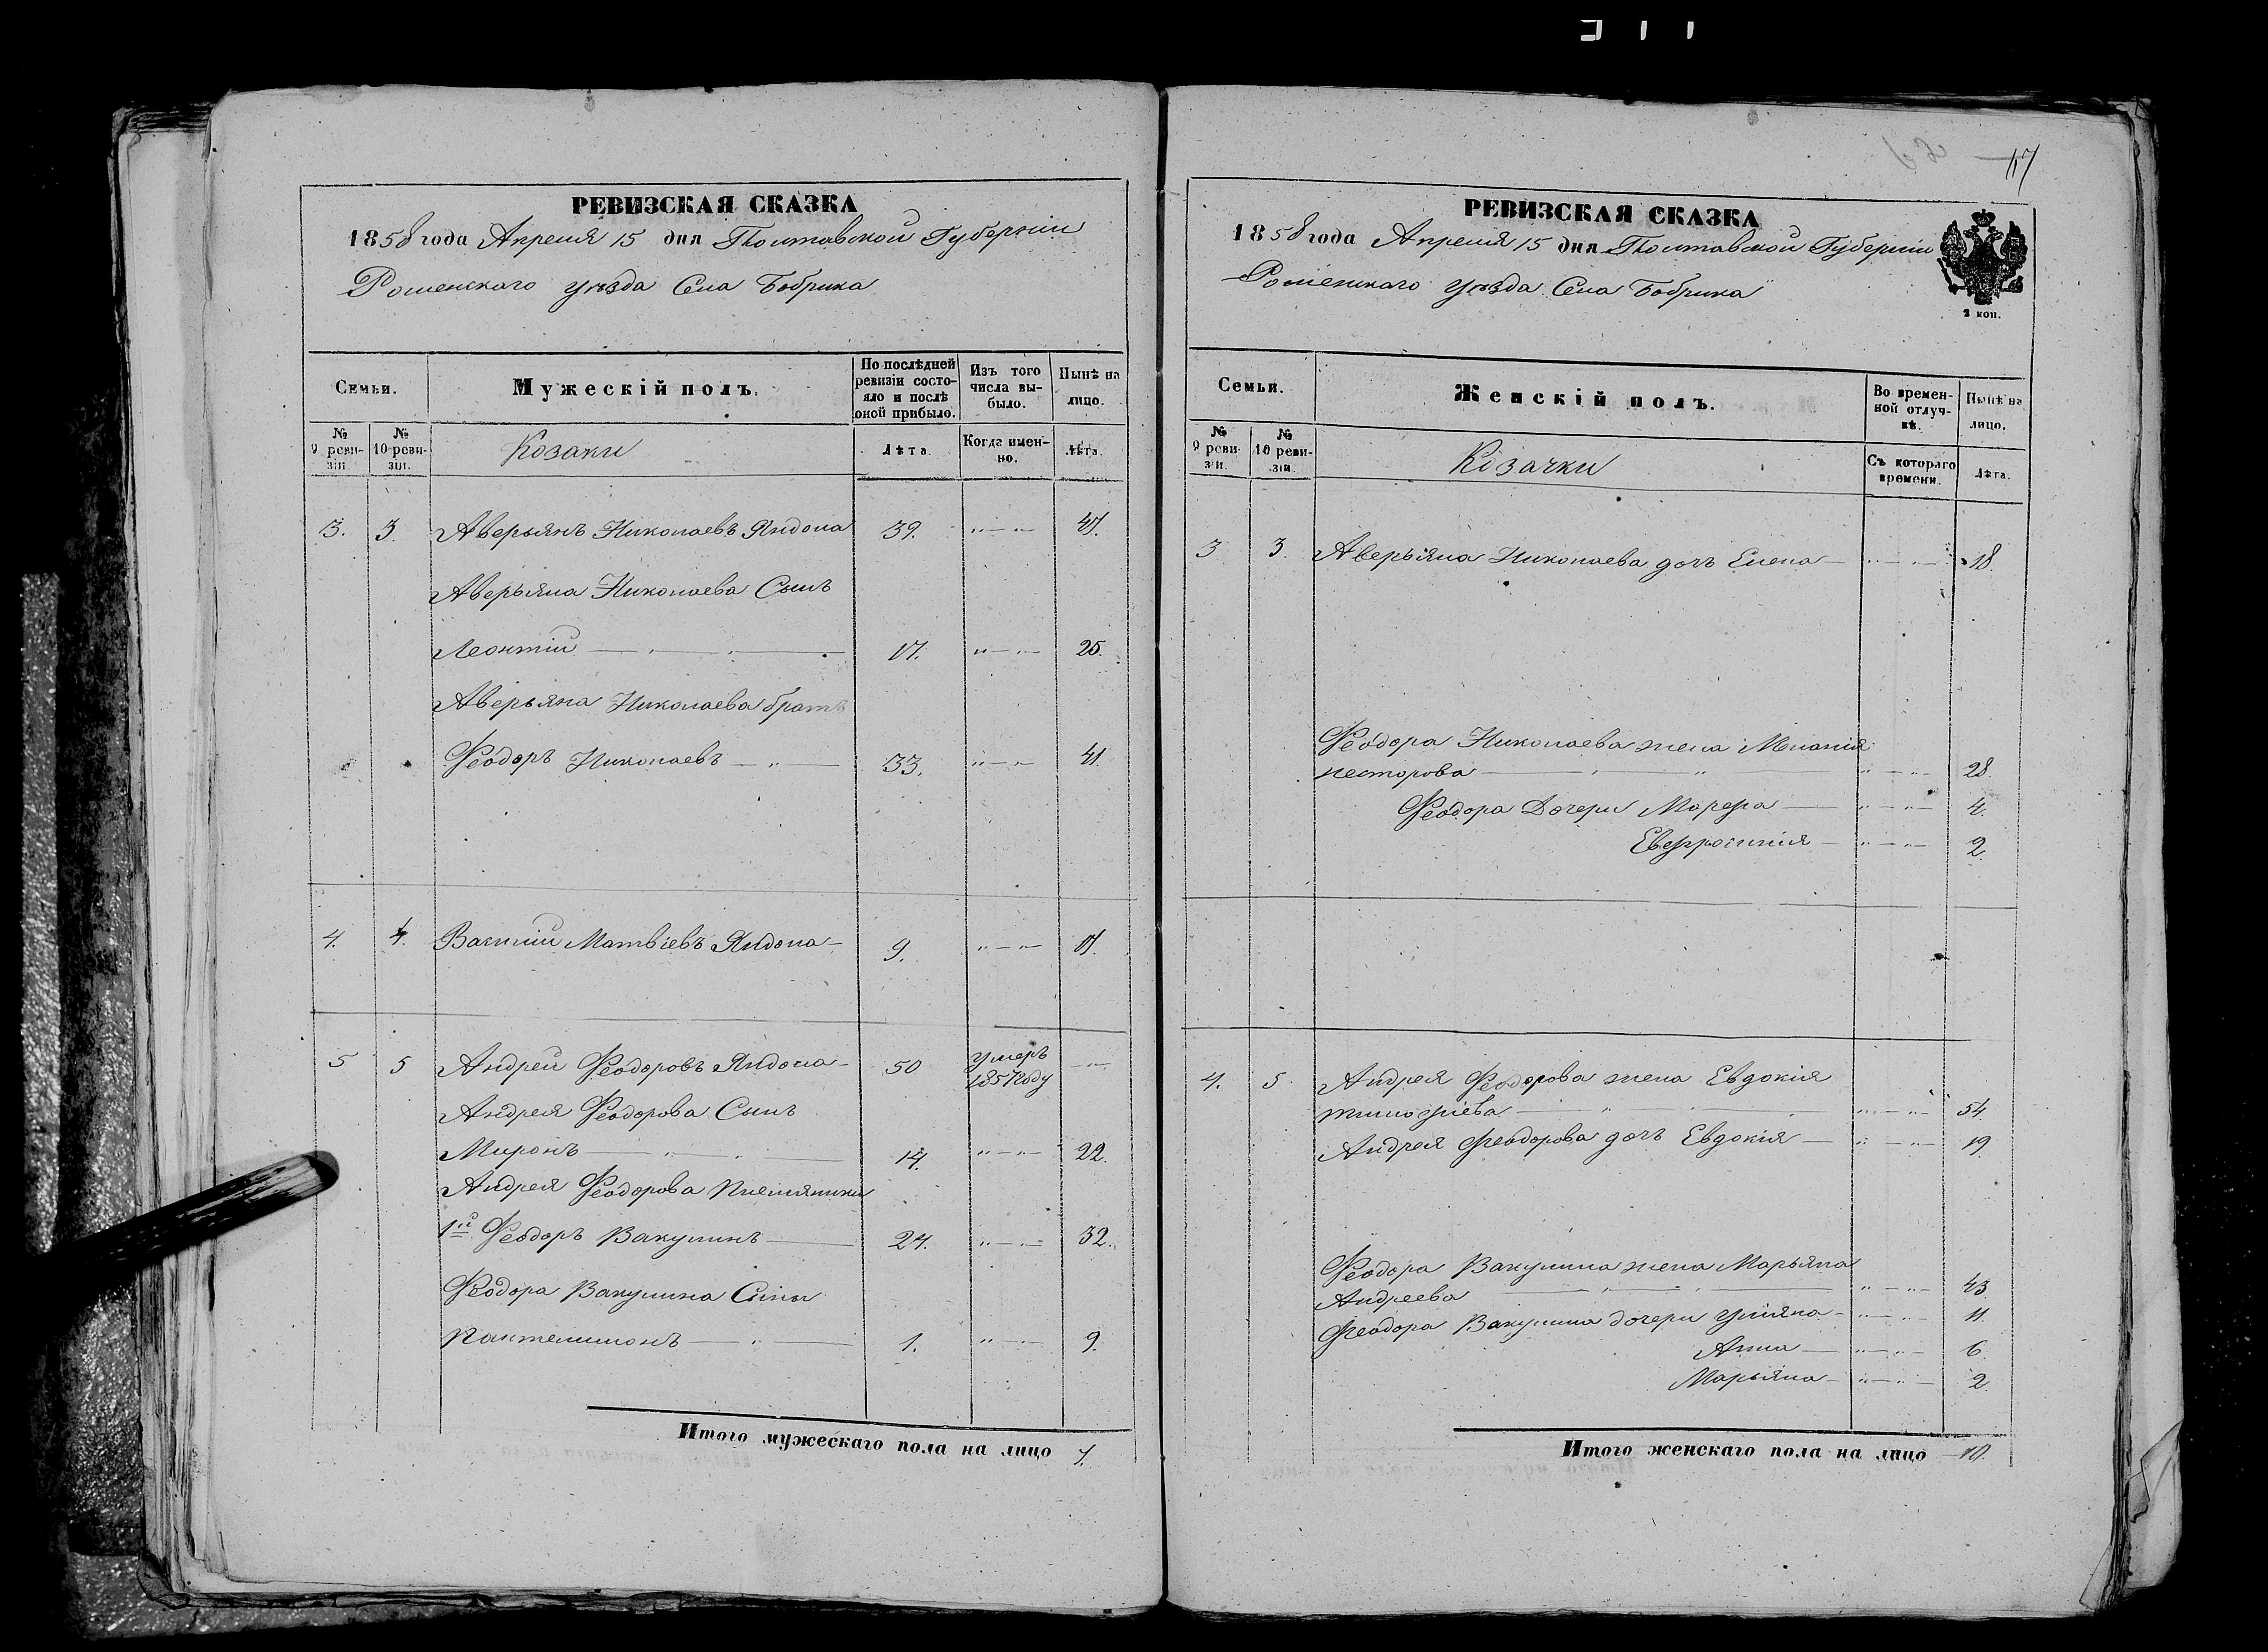 17
РЕВИЗСКАЯ СКАЗКА
1858 года Апреля 15 дня Полтавской Губернии
Роменскаго уѣзда Села Бобрика
Семьи.
Мужескій полъ.
По послѣдней ревизіи состояло и послѣ оной прибыло.
Изъ того числа выбыло.
Нынѣ на лицо.
№ 9 ревизіи.
№ 10 ревизіи.
Козаки
Лѣта.
Когда именно.
Лѣта.
3. 3. Аверьянъ Николаевъ Яндола 39. „—„— 47.
Аверьяна Николаева Сынъ
Леонтій 17. „—„— 25.
Аверьяна Николаева братъ
Феодоръ Николаевъ —„— 33. „—„— 41
4. 4. Матвіевъ Яндола — 9. „—„— 17.
5 5 Андрей Феодоровъ Яндола — 50 умеръ 1857 году —„—
Андрея Феодорова Сынъ
Миронъ 14. „—„— 22.
Андрея Феодорова племянники
1й Феодоръ Вакулинъ 24. „—„— 32.
Феодора Вакулина Сины
Пантелимонъ —„— 1. „—„— 9.
Итого мужескаго пола на лицо 7.
РЕВИЗСКАЯ СКАЗКА
1858 года Апреля 15 дня Полтавской Губерніи
Роменскаго уѣзда Села Бобрика
2 коп.
Семьи.
Женскій полъ.
Во временной отлучкѣ.
Нынѣ на лицо.
№ 9 ревизіи.
№ 10 ревизіи.
Козачки
Съ котораго времени.
Лѣта.
3 3. Аверьяна Николаева дочъ Елена — „—„— 18.
Феодора Николаева жена Меланія
Несторова „—„— 28.
Феодора Дочери Марфа „—„— 4.
Евфросинія — „—„— 2.
4. 5. Андрея Феодорова жена Евдокія
Тимофіева „—„— 54.
Андрея Феодорова дочъ Евдокія — „—„— 19
Феодора Вакулина жена Марьяна
Андреева „—„— 43.
Феодора Вакулина дочери Уліяна — „—„— 11.
Анна — „—„— 6.
Марьяна — „—„— 2.
Итого женскаго пола на лицо 10.